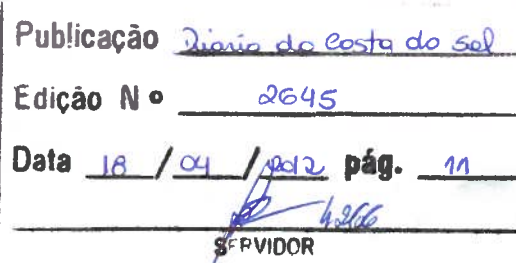 Publicação Diario da Costa do Sol
Edição Nº 2645
Data 18 / 04 / 2012 pág. 11
4266
SERVIDOR